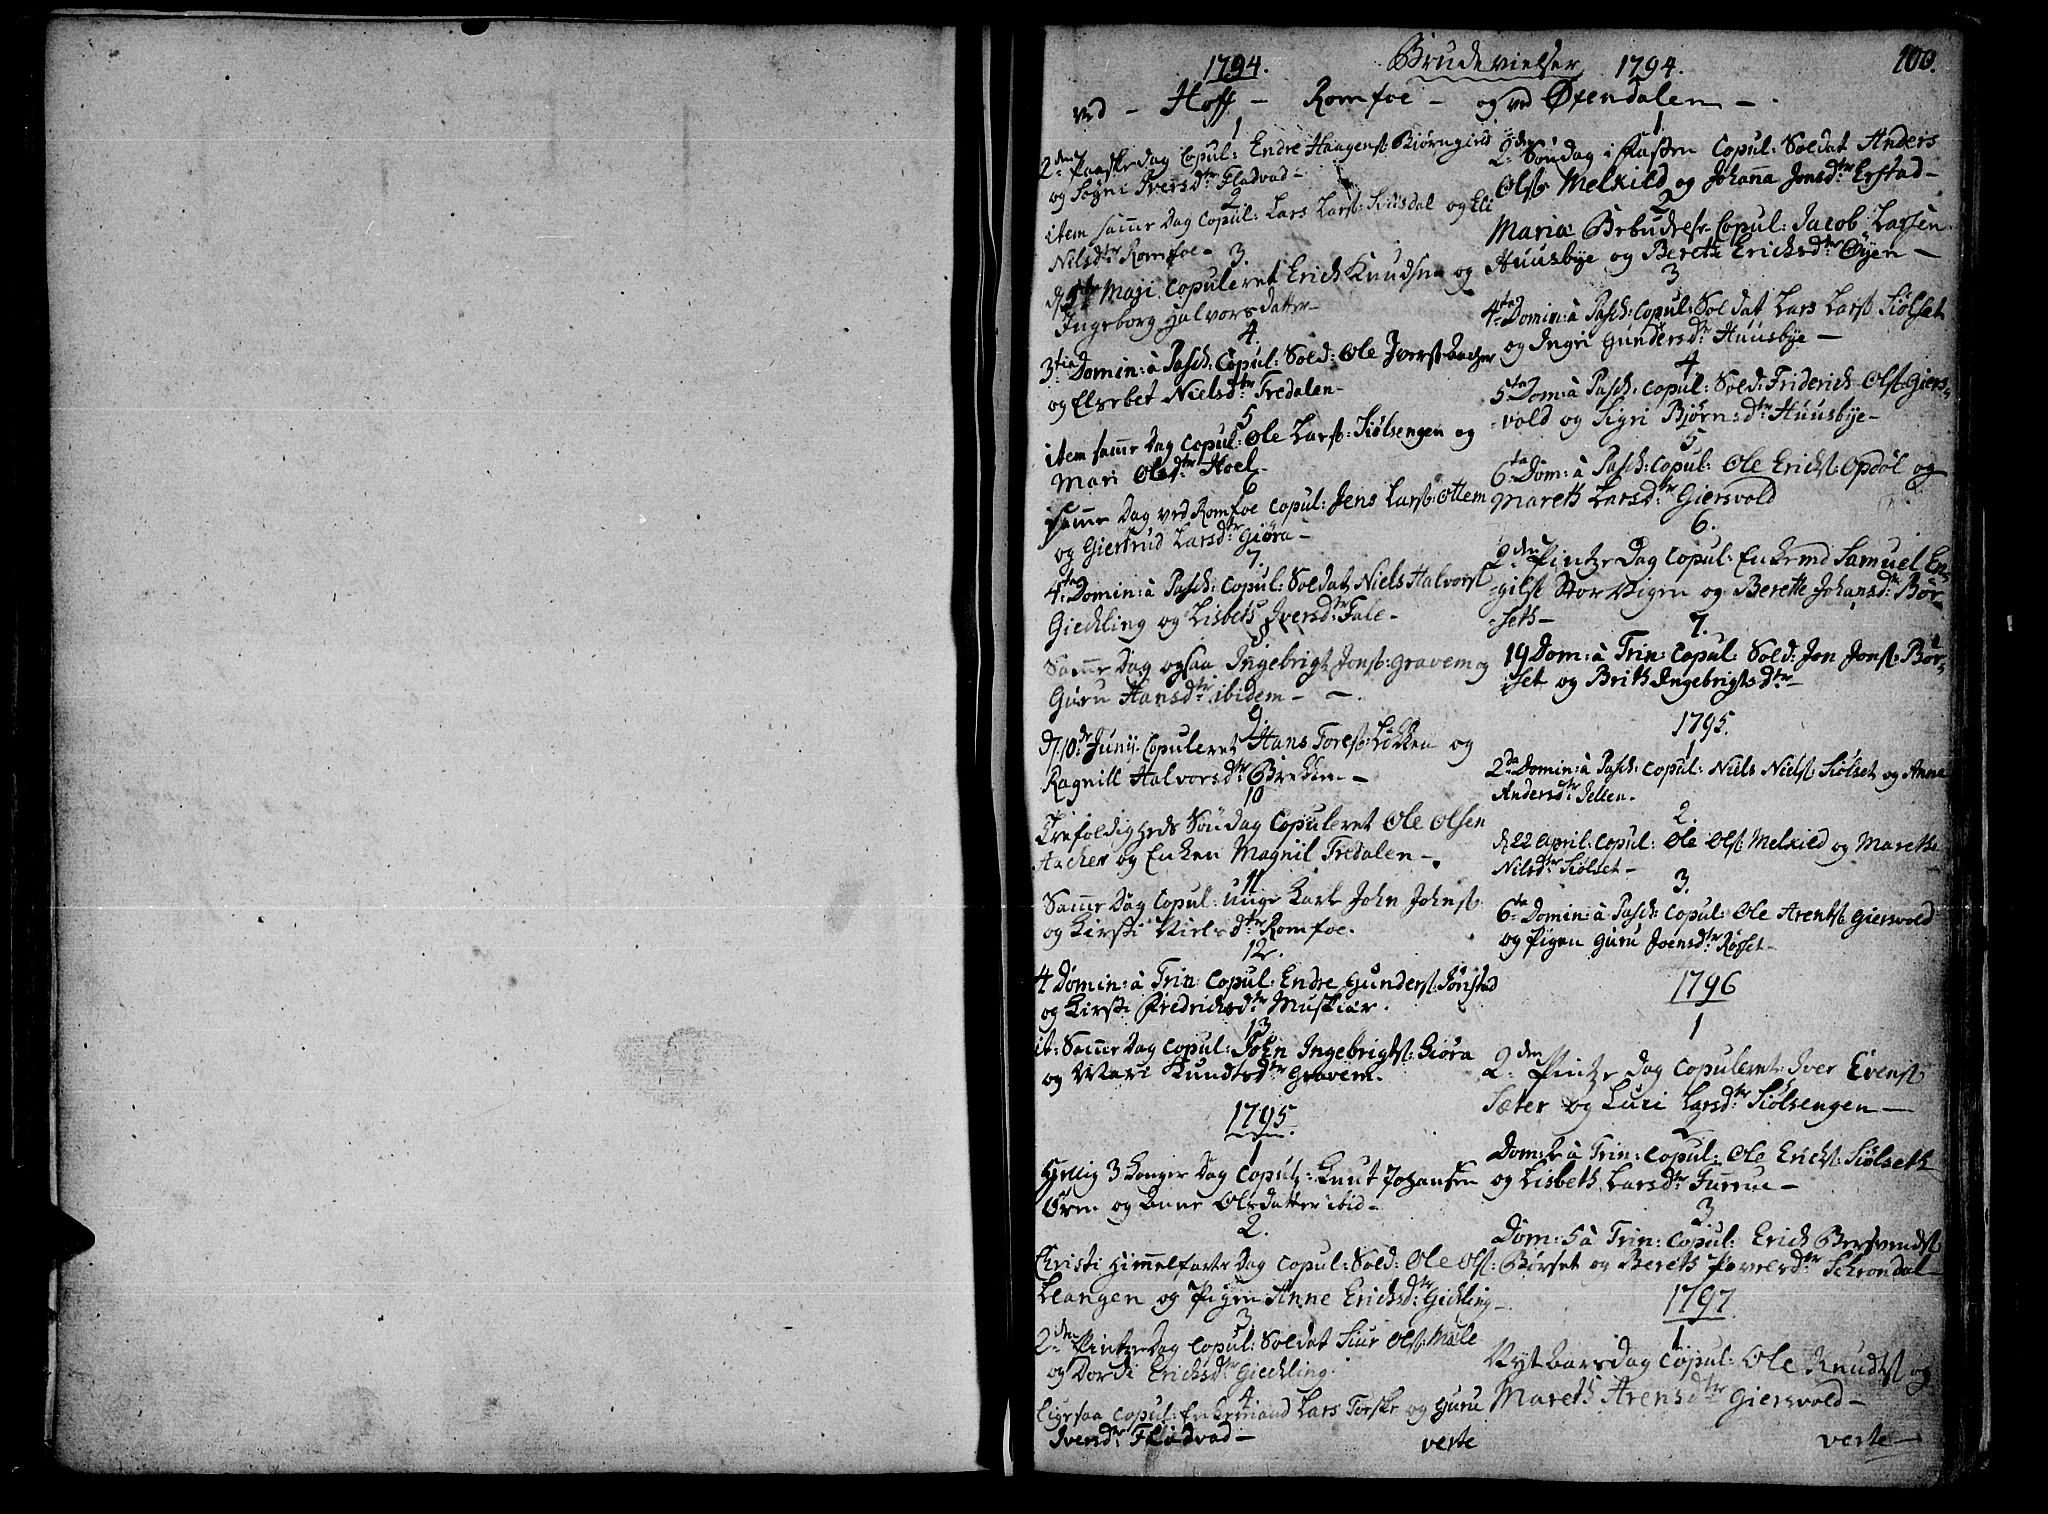 1794. Brudevielser 1794. 100.
ved - Hoff - Romfoe - og ved Øxendalen -
1
2den Paaskedag Copul: Endre Haagens: Biørngierd
og Sigri Iversdtr Fladvad -
2
item samme Dag Copul: Lars Lars: og Eli
Nilsdtr Romfoe -
3.
d 5te Maji Copuleret Erich Knudsen og
Ingeborg Halvorsdatter -
4.
3tia Domin: à Pasch: Copul: Sold: Ole Ivers:
og Elsebet Nielsdtr Fredalen -
5
item samme Dag Copul: Ole Lars: Siølsengen og
Mari Olsdtr Hoel -
6
samme Dag ved Romfoe Copul: Jens Lars: Ottem
og Giertrud Larsdtr Giøra -
7.
4ta Domin: à Pasch: Copul: Soldat Niels Halvors
Giechling og Lisbeth Iversdtr Fale -
8
Samme Dag ogsaa Ingebrigt Jons: Gravem og
Guru Hansdtr ibidem -
9
d 10de Junii Copuleret Hans Tores: Løkken og
Ragnill Halvorsdtr Brekken -
10
Trefoldigheds Søndag Copuleret Ole Olsen
Aacher og Enken Magnil Fredalen -
11
Samme Dag Copul: unge Karl John Johns:
og Kirsti Nielsdtr Romfoe.
12.
4 Domin: à Trin: Copul: Endre Gunders: Jønstad
og Kirsti Fredrichsdtr Muskiær.
13.
it: Samme Dag Copul: John Ingebrigts: Giøra
og Mari Knudtsdtr Gravem.
1795.
1
Hellig 3 Konger Dag Copul: Knut Johansen
Ørn og Anne Olsdatter ibid -
2.
Christi Himmelfarts Dag Copul: Sold: Ole Ols:
Langen og Pigen Anne Erichsdtr Gichling -
3
2den Pintze Dag Copul: Soldat Siur Ols: Mæle
og Dordi Erichsdtr Giechling.
4
Ligesaa Copul: Enkemand Lars Torske og Guru
Iversdtr Fladvad -
verte
1.
2den Søndag i Fasten Copul: Soldat Anders
Ols: Melkild og Johana Jonsdtr Erstad -
2
Mariæ Bebudelse Copul: Jacob Larsen
Huusbye og Berethe Erichsdtr Øyen -
3
4ta Domin: à Pasch: Copul: Soldat Lars Lars: Siølset
og Ingri Gundersdtr Huusbye -
4
5ta Dom: à Pasch: Copul: Sold: Friderich Ols: Giers-
-vold og Sigri Bjørnsdtr Huusbye -
5
6ta Dom: à Pasch: Copul: Ole Erichs: Opdøl og
Mareth Larsdtr Giersvold
6.
2den Pintze Dag Copul: Enkemd Samuel En-
-gils: Stor Vigen og Berette Johansdtr Bør-
-seth -
7.
19 Dom: à Trin: Copul: Sold: Jon Jons: Bør-
-set og Brith Ingebrigtsdtr -
1795.
1
2da Domin: à Pasch: Copul: Niels Niels: Siølset og Anne
Andersdtr Jellen.
2
d 22 April: Copul: Ole Ols: Melkild og Marethe
Nilsdtr Siølset -
3.
6ta Domin: à Pasch: Copul: Ole Arents: Giersvold
og Pigen Guru Joensdtr Røsset -
1796
1
2den Pintze Dag Copuleret Iver Evens:
Sæter og Luci Larsdtr Siølsengen -
2
Dom: 2 à Trin: Copul: Ole Erichs: Siølseth
og Lisbeth Larsdtr Furrue -
3
Dom: 5 à Trin: Copul: Erich Bersvends:
Børset og Bereth Povelsdtr Schrondal -
1797
1
Nytaarsdag Copul: Ole Knudts: og
Mareth Arensdtr Giersvold -
verte -